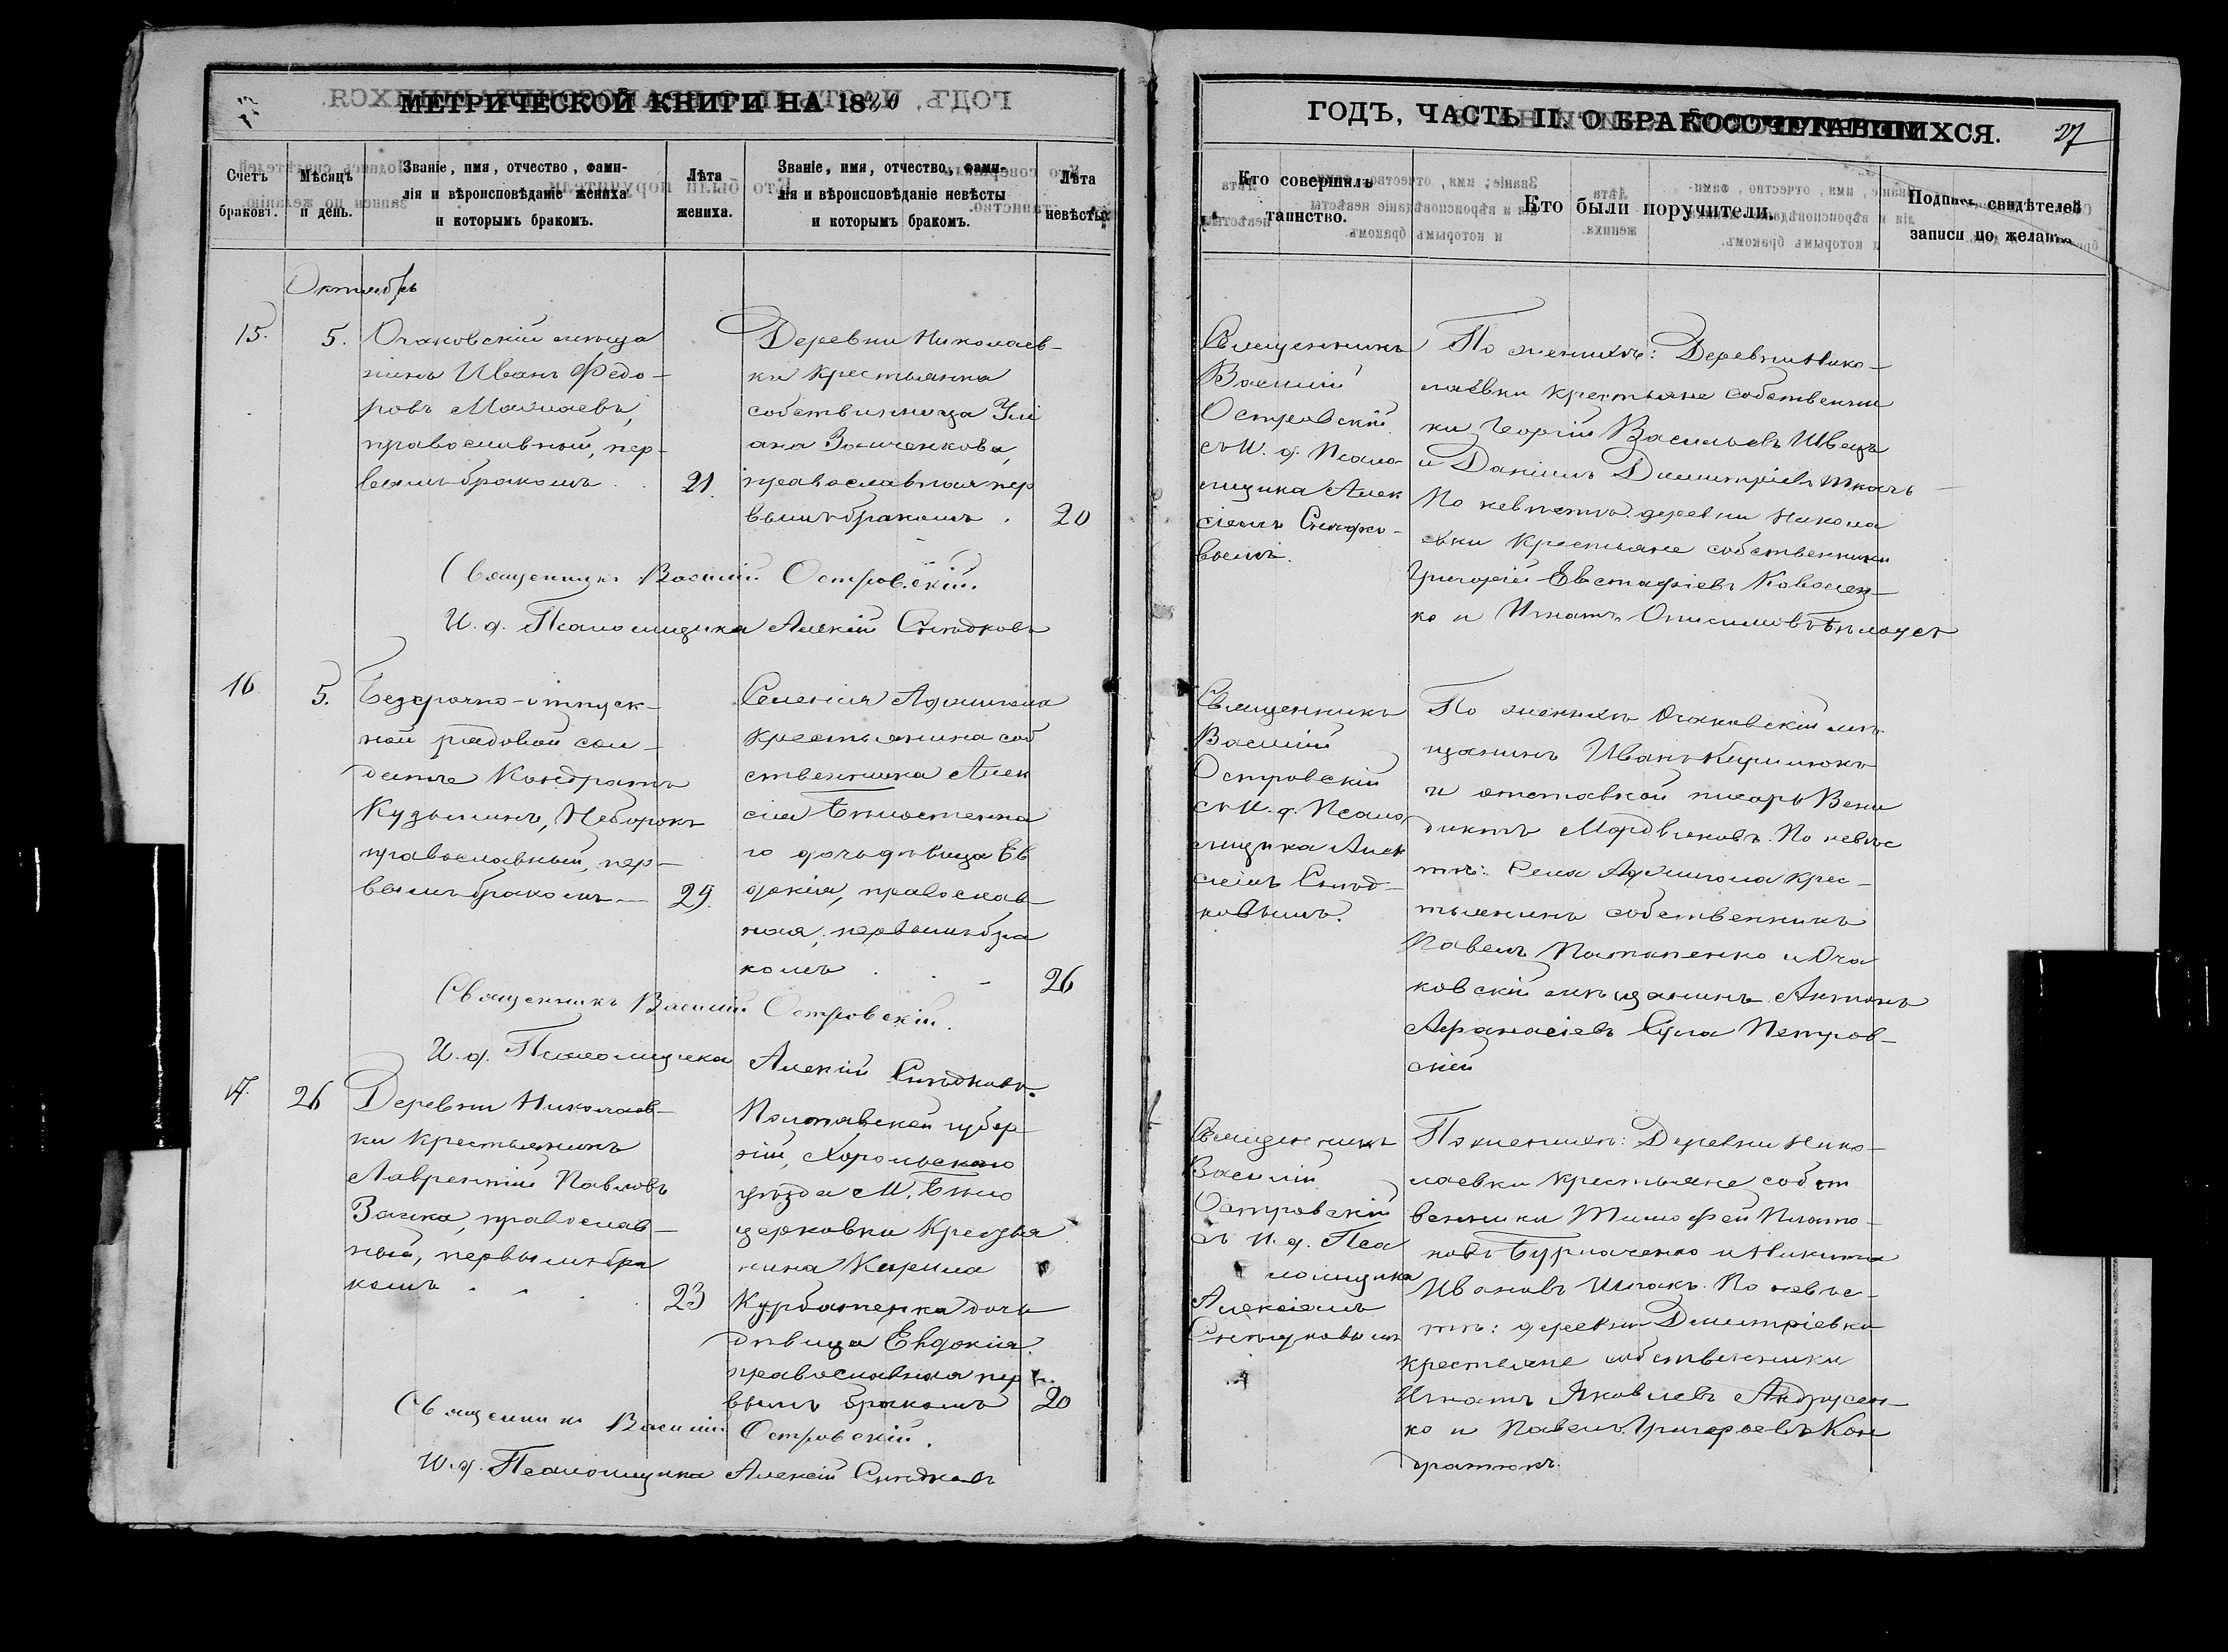 МЕТРИЧЕСКОЙ КНИГИ НА 1880
Счетъ браковъ.
Мѣсяцъ и день.
Званіе, имя, отчество, фами-
лія и вѣроисповѣданіе жениха
и которымъ бракомъ.
Лѣта жениха.
Званіе, имя, отчество, фами-
лія и вѣроисповѣданіе невѣсты
и которымъ бракомъ.
Лѣта невѣсты.
Октябрь
15.
5.
Очаковскій мѣща
нинъ Иванъ Федо-
ровъ
православный, пер-
вымъ бракомъ
21.
Деревни Николаев-
ки крестьянка
собственница Улі
ана Зайченкова,
православная пер
вымъ бракомъ.
20
Священникъ Василій Островскій.
И. д. Псаломщика Алексій Снѣдковъ
16
5.
Безсрочно-отпуск-
ной рядовой сол-
датъ Кондратъ
Кузьминъ, Неборокъ
православный, пер-
вымъ бракомъ
29.
Селенія Аджигола
крестьянина соб
ственника Алек
сія Бѣлостенна
го дочь дѣвица Ев
докія, православ-
ная, первымъ бра
комъ
26
Священникъ Василій Островскій.
И. д. Псаломщика Алексій Снѣдковъ.
17.
26
Деревни Николаев-
ки крестьянинъ
Лаврентій Павловъ
Заика, православ-
ный, первымъ бра
комъ
23
Полтавской губер
ніи, Хорольскаго
уѣзда М. Бѣло
церковки крестья
нина Кирила
Курбатенка дочь
дѣвица Евдокія
православная пер
вымъ бракомъ
20
Священникъ Василій Островскій.
И. д. Псаломщика Алексій Снѣдковъ
ГОДЪ, ЧАСТЬ II. О БРАКОСОЧЕТАВШИХСЯ.
27
Кто совершилъ таинство.
Кто были поручители.
Подпись свидѣтелей
записи по желанію.
Священникъ
Василій
Островскій
съ И. д. Псало
мщика Алек
сіемъ Снѣдко-
вымъ.
По женихѣ: Деревни Нико-
лаевки крестьяне собственни
ки Георгій Васильевъ Швецъ
и Даніилъ Димитріевъ Ткачъ
По невѣстѣ: деревни Никола
евки крестьяне собственники
Григорій Евстафіевъ Коволен-
ко и Игнатъ Онисимовъ Бѣлоусъ
Священникъ
Василій
Островскій
съ И. д. Псало
мщика Алек
сіемъ Снѣд-
ковымъ.
По женихѣ Очаковскій мѣ
щанинъ Иванъ Кирилюкъ
и отставной писарь Вени
диктъ Мордвинковъ. По невѣс
тѣ: Села Аджигола крес-
тьянинъ собственникъ
Павелъ Потапенко и Оча
ковскій мѣщанинъ Антонъ
Афанасіевъ Сула Петров-
скій
Священникъ
Василій
Островскій
съ И. д. Пса
ломщика
Алексіемъ
Снѣдковымъ
По женихѣ: Деревни Нико-
лаевки крестьяне собст
венники Тимофей Плато-
новъ Бурлаченко и Никита
Ивановъ Шпакъ. По невѣс-
тѣ: деревни Димитріевки
крестьяне собственники
Игнатъ Яковлевъ Андрусен-
ко и Павелъ Григорьевъ Кон
дратюкъ.